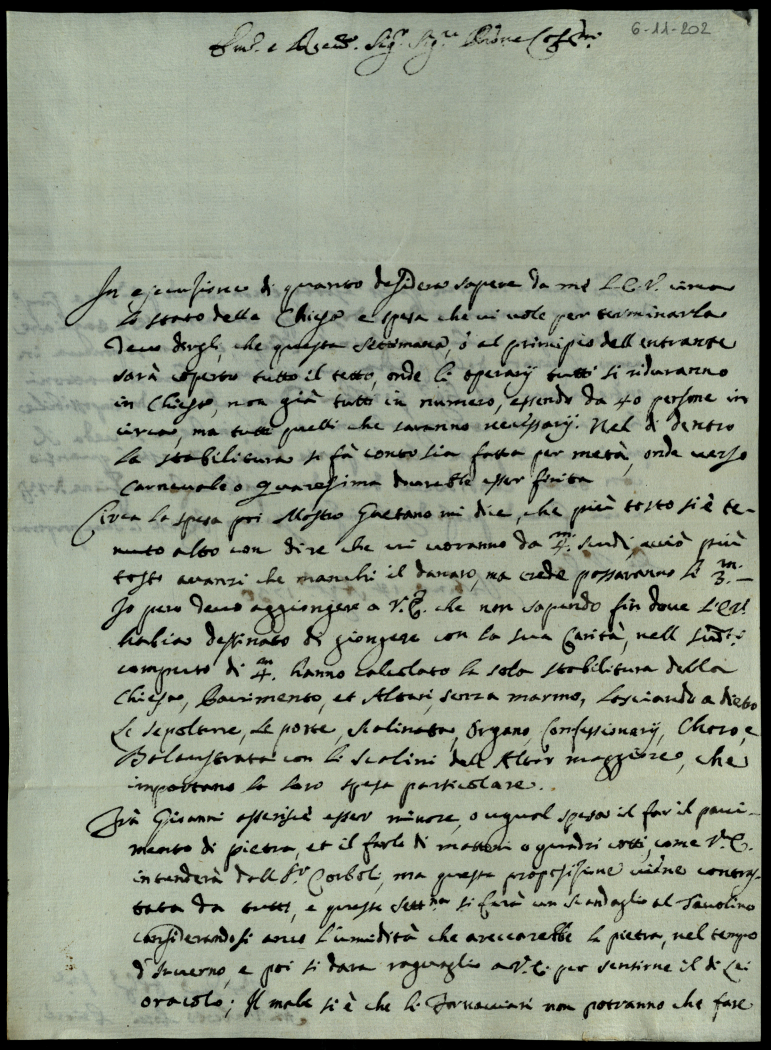 6-11-202
Em.o e R.mo Sig.r Sig.re Prone Col.mo
In ejecusione di quanto desidera sapere da me L'E.V. circa
lo stato della Chiesa e spesa che vi vole per terminarla
devo dirgli, che questa settimana, ò al principio dell entrante
sarà coperto tutto il tetto, onde li operarij tutti si riduranno
in Chiesa, non già tutti in numero, essendo da 40 persone in
circa, ma tutti quelli che saranno necessarij. Nel di dentro
la stabilitura si fà conto sia fatta per metà, onde verso
Carnevale o Quaresima dovrebbe esser finita
Circa la spesa poi Mastro Gaetano mi dice, che più tosto si è te-
nuto alto con dire che vi voranno da m/4. scudi, acciò più
tosto avanzi che manchi il danaro, ma crede possavanno li m/3.
Io pero devo aggiongere a V.E. che non sapendo fin dove L'E.V.
habia destinato di giongere con la sua Carità, nell sud.o
computo di m/4. hanno calcolato la sola stabilitura della
Chiesa, Pavimento, et Altari, senza marmo, lasciando a dietro
le sepolture, le porte, scalinata, Organo, Confessionarij, Choro, e
Balaustrata con li scalini dell Altar maggiore, che
importano la loro spesa particolare.
Frà Giovanni asserisce esser minore, o ugual spesa il far il pavi-
mento di pietra, et il farlo di mattoni o quadri cotti, come V.E.
intenderà dall S.r Corboli, ma questa proposisione viene contras-
tata da tutti, e questa sett.na si farà un scandaglio al Tavolino
considerandosi anco l'umidità che areccarebbe la pietra, nel tempo
d'Inverno, e poi si dara raguaglio a V.E. per sentirne il di Lei
oracolo; Il male si è che li Fornacciari non potranno che fare